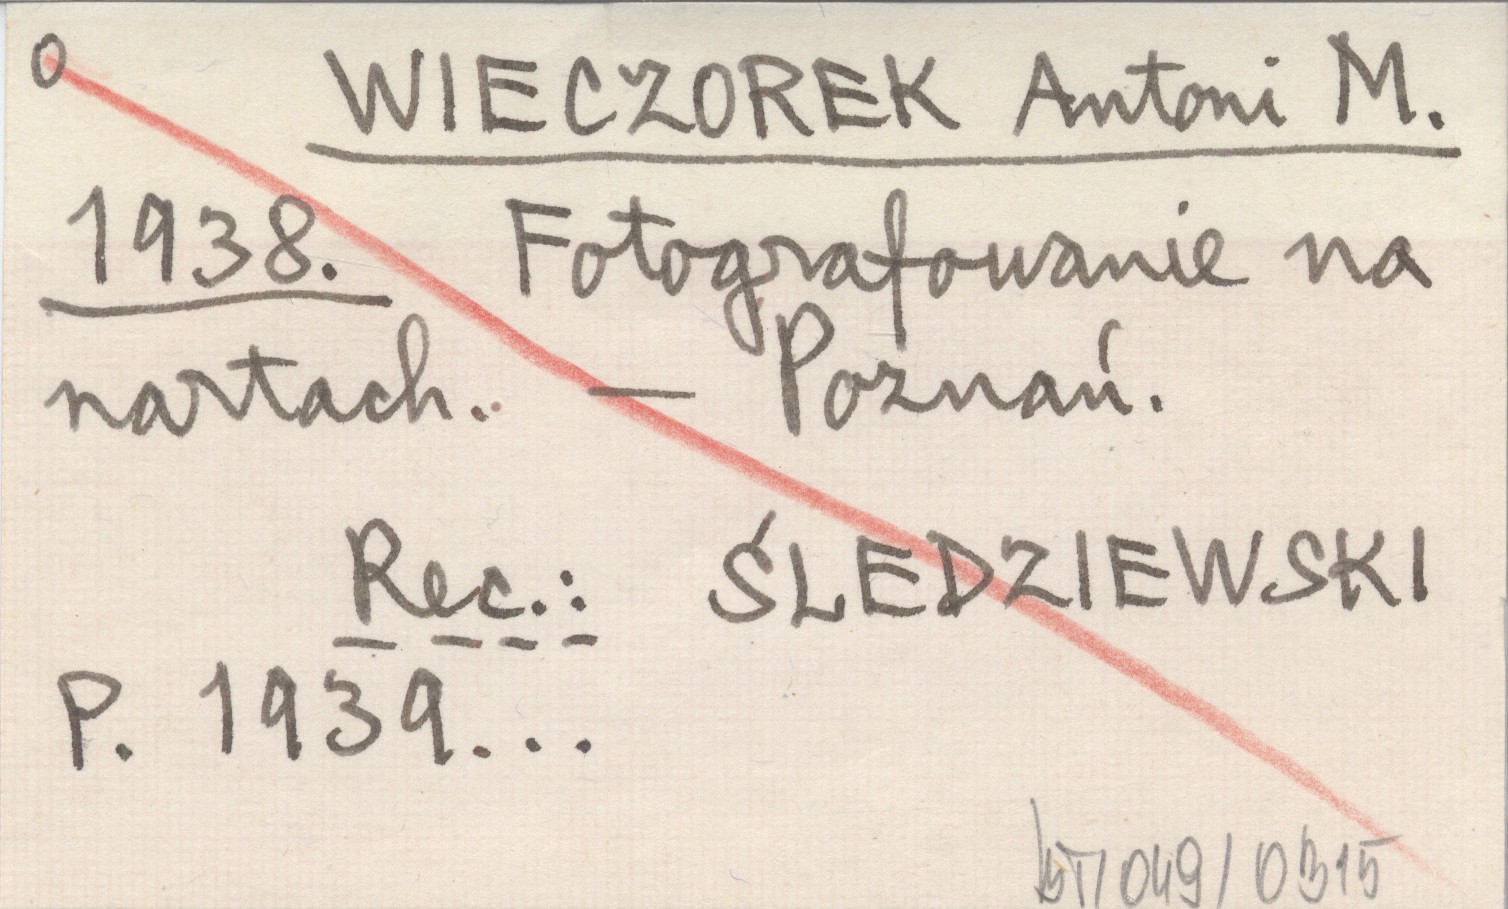 0 WIECZOREK Antoni M.
1938. Fotografowanie na
nartach. — Poznań.
Rec.: ŚLEDZIEWSKI
P. 1939...
/049/0315